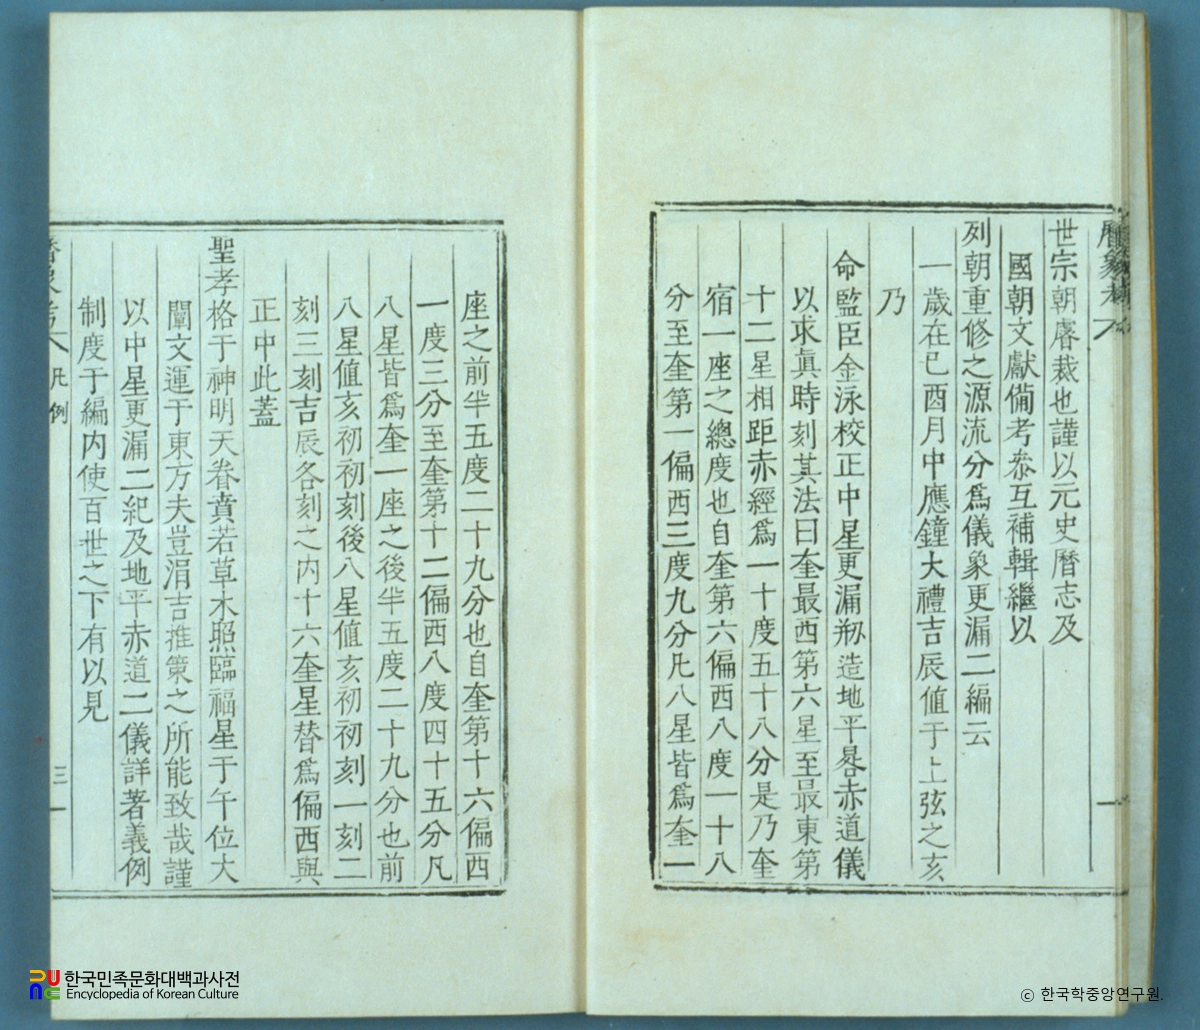 世宗朝睿裁也謹以元史曆志及
國朝文獻備考叅互補輯繼以
列朝重修之源流分爲儀象更漏二編云
一歲在己酉月中應鐘大禮吉辰値于上弦之亥
乃
命監臣金泳校正中星更漏刱造地平晷赤道儀
以求眞時刻其法曰奎最西第六星至最東第
十二星相距赤經爲一十度五十八分是乃奎
宿一座之總度也自奎第六偏西八度一十八
分至奎第一偏西三度九分凡八星皆爲奎一
座之前半五度二十九分也自奎第十六偏西
一度三分至奎第十二偏西八度四十五分凡
八星皆爲奎一座之後半五度二十九分也前
八星値亥初初刻後八星値亥初初刻一刻二
刻三刻吉辰各刻之內十六奎星替爲偏西與
正中此蓋
聖孝格于神明天眷賁若草木照臨福星于午位大
闡文運于東方夫豈涓吉推策之所能致哉謹
以中星更漏二紀及地平赤道二儀詳著義例
制度于編內使百世之下有以見
凡例
三
한국민족문화대백과사전
Encyclopedia of Korean Culture
© 한국학중앙연구원.